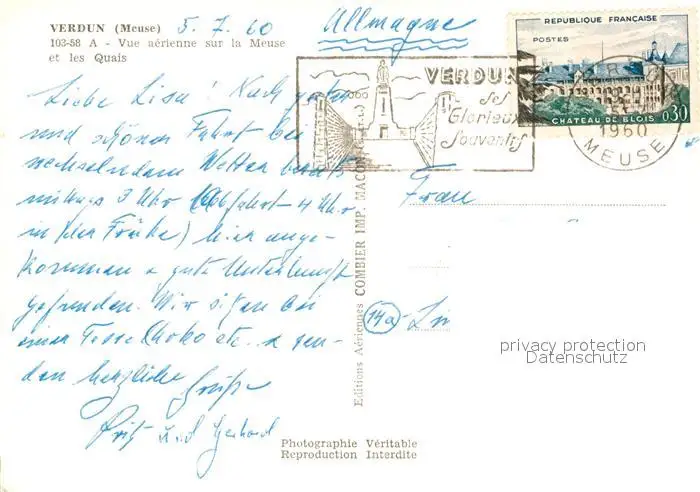 VERDUN (Meuse)
5.7.60
103-58 A - Vue aérienne sur la Meuse
et les Quais
Allmagne
Liebe Lisa! Nach guter
und schöner Fahrt bei
wechselndem Wetter bereits
mittags 3 Uhr (Abfahrt 4 Uhr
in der Frühe) hier ange-
kommen & gute Unterkunft
gefunden. Wir sitzen bei
einer Tasse Choko etc. & sen-
den herzliche Grüße
und Gerhard
VERDUN
Ses
Glorieux
Souvenirs
REPUBLIQUE FRANÇAISE
POSTES
CHATEAU DE BLOIS
0,30
1960
MEUSE
Frau
14a
privacy protection
Datenschutz
Editions Aériennes COMBIER IMP. MACON
Photographie Véritable
Reproduction Interdite